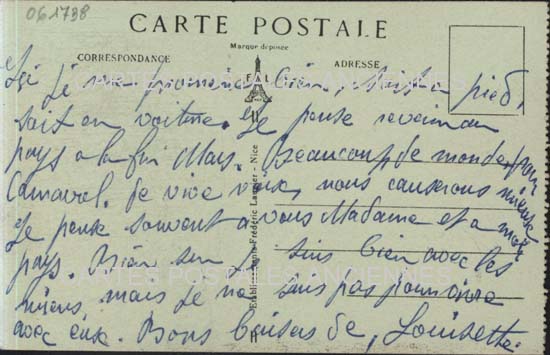 061738
CARTE POSTALE
Marque déposée
CORRESPONDANCE
ADRESSE
E L D
Ici je me promène bien, soit à pied,
soit en voiture. Je pense revenir au
pays à la fin Mars. Beaucoup de monde pour
Carnaval. De vive voix, nous causerons mieux
Je pense souvent à vous Madame et à mon
pays. Bien sûr je suis bien avec les
miens, mais je ne suis pas pour vivre
avec eux. Bons baisers de, Louisette.
Frédéric Laugier - Nice
CARTES POSTALES ANCIENNES
CARTES POSTALES ANCIENNES